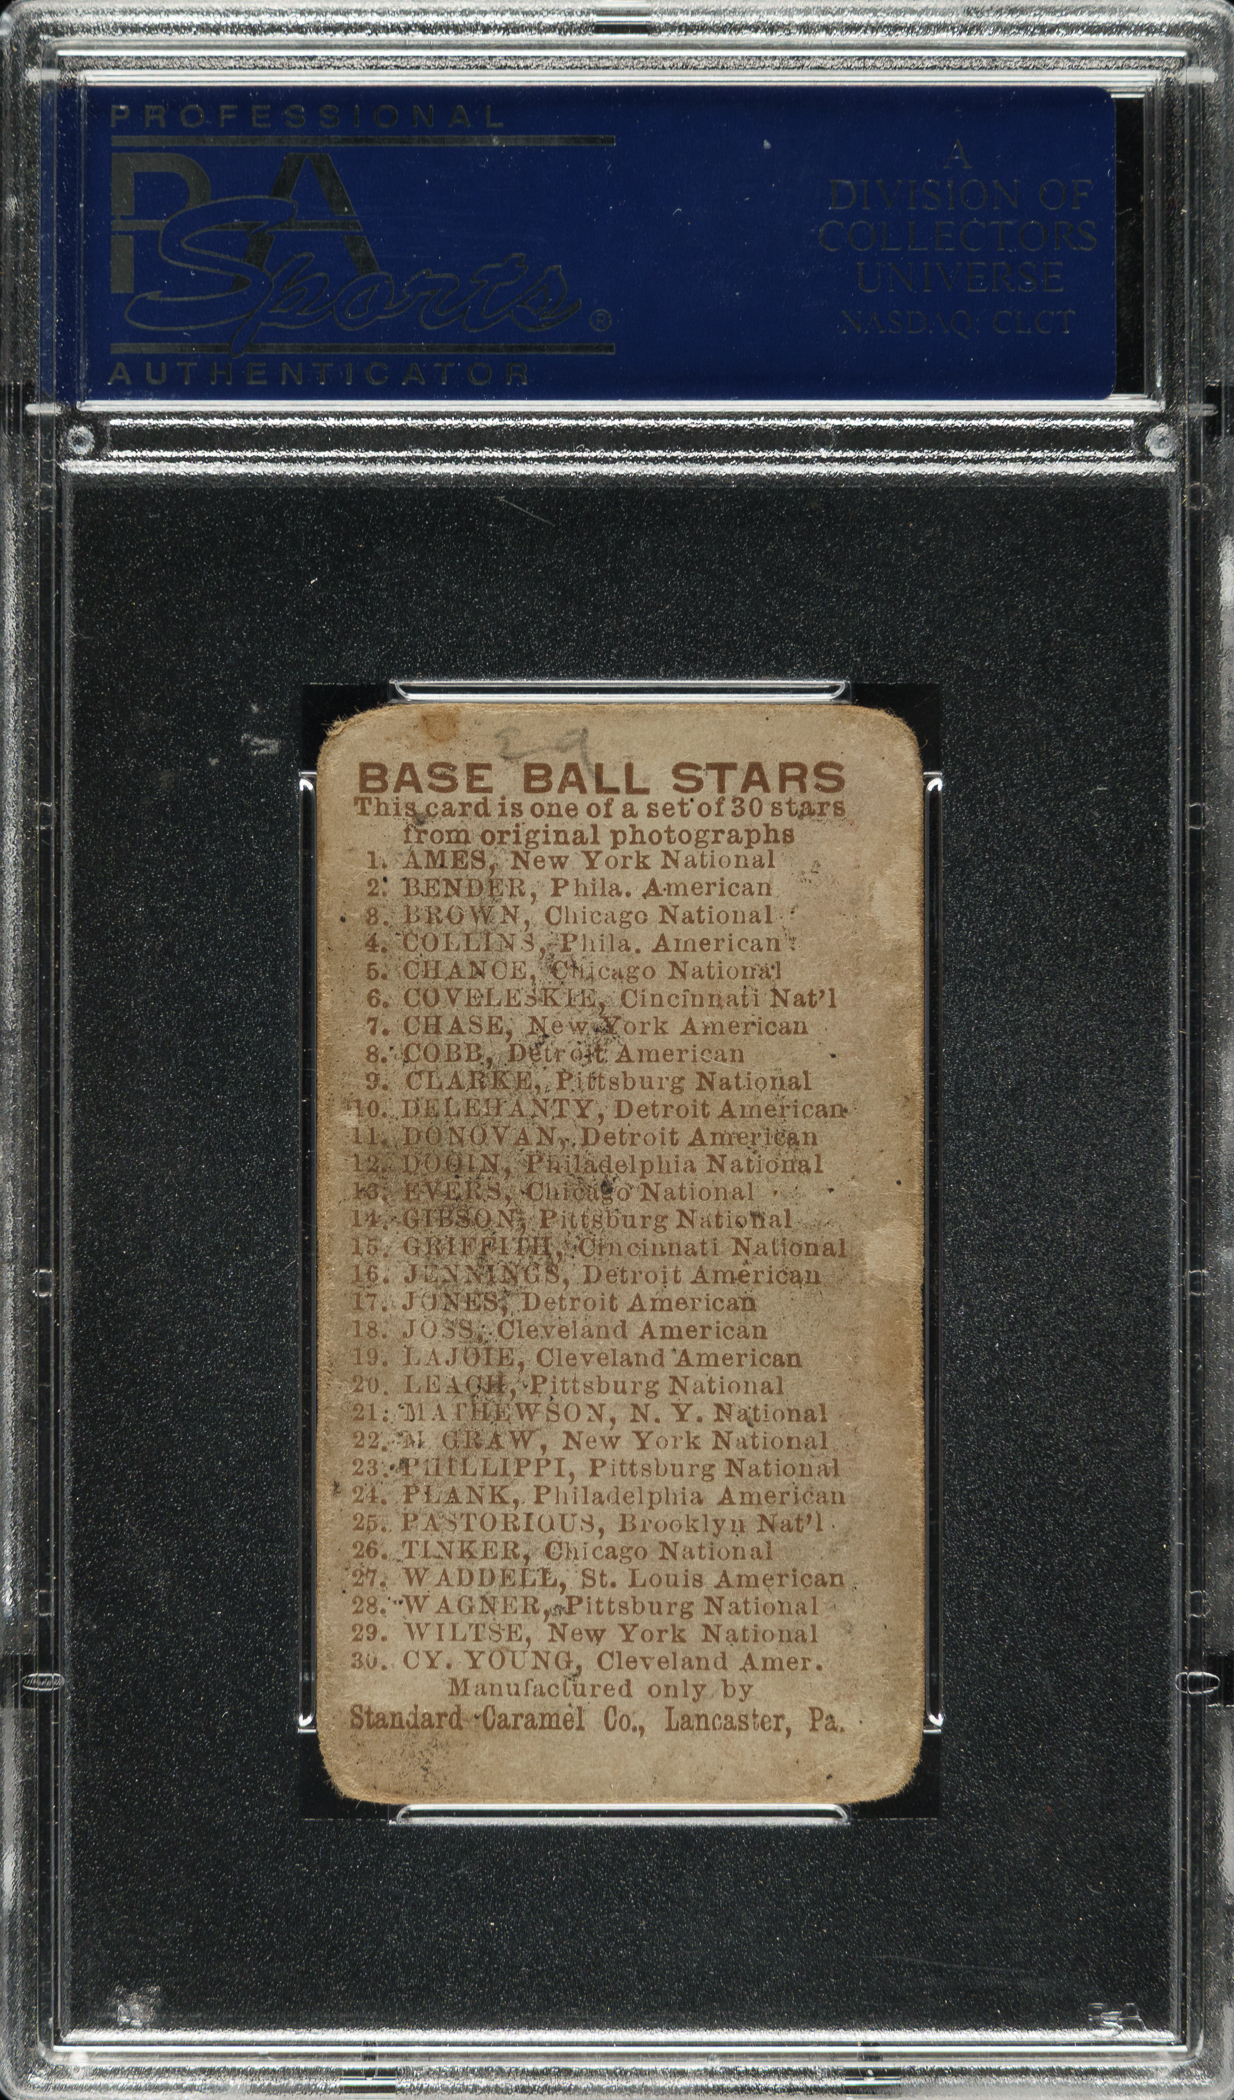 PROFESSIONAL
PSA
Sports®
AUTHENTICATOR
A
DIVISION OF
COLLECTORS
UNIVERSE
NASDAQ: CLCT
BASE BALL STARS
This card is one of a set of 30 stars
from original photographs
1. AMES, New York National
2. BENDER, Phila. American
3. BROWN, Chicago National
4. COLLINS, Phila. American
5. CHANCE, Chicago National
6. COVELESKIE, Cincinnati Nat'l
7. CHASE, New York American
8. COBB, Detroit American
9. CLARKE, Pittsburg National
10. DELEHANTY, Detroit American
11. DONOVAN, Detroit American
12. DOOIN, Philadelphia National
13. EVERS, Chicago National
14. GIBSON, Pittsburg National
15. GRIFFITH, Cincinnati National
16. JENNINGS, Detroit American
17. JONES, Detroit American
18. JOSS, Cleveland American
19. LAJOIE, Cleveland American
20. LEACH, Pittsburg National
21. MATHEWSON, N. Y. National
22. M GRAW, New York National
23. PHILLIPPI, Pittsburg National
24. PLANK, Philadelphia American
25. PASTORIOUS, Brooklyn Nat'l
26. TINKER, Chicago National
27. WADDELL, St. Louis American
28. WAGNER, Pittsburg National
29. WILTSE, New York National
30. CY. YOUNG, Cleveland Amer.
Manufactured only by
Standard Caramel Co., Lancaster, Pa.
PSA